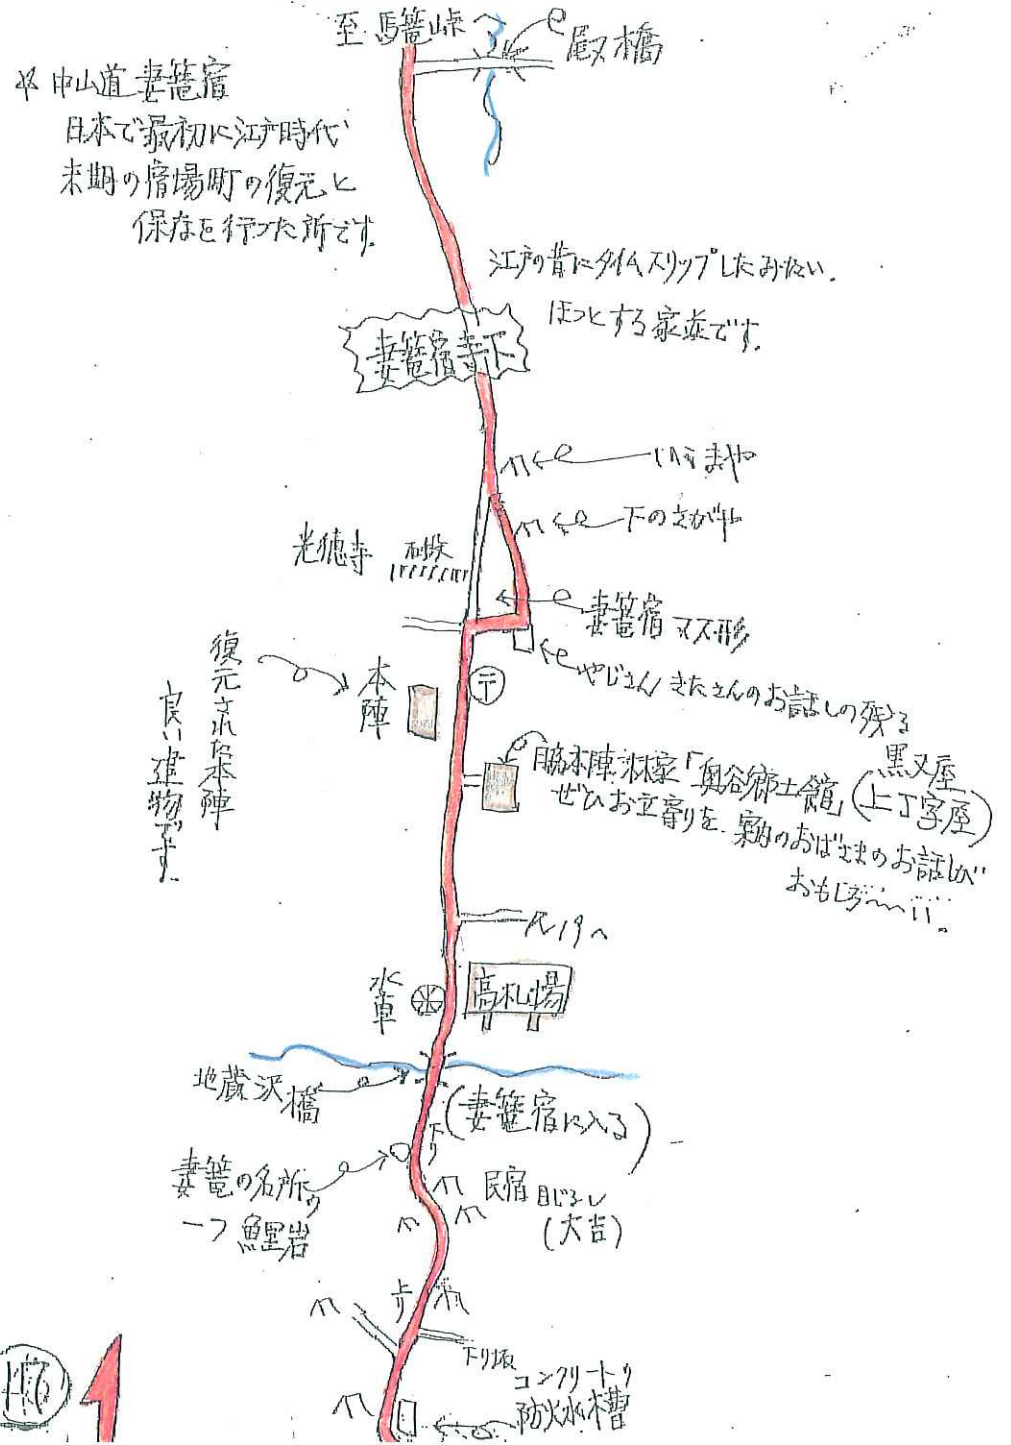 至 馬籠峠へ
尾又橋
中山道 妻籠宿
日本で最初に江戸時代
末期の宿場町の復元と
保存を行った所です。
江戸の昔にタイムスリップしたみたい.
ほっとする家並です。
妻籠宿寺下
下のさがや
光徳寺
石段
妻籠宿 マス形
やじさん/きたさんのお話しの残る
黒又屋
(上丁字屋)
復元された本陣
良い建物です.
本陣
〒
脇本陣 林家「奥谷郷土館」
ぜひお立寄りを.案内のおばさまのお話しが
おもしろ〜い。
水車
高札場
地蔵沢橋
(妻籠宿に入る)
下り
妻籠の名所の
一つ 鯉岩
民宿 目じるし
(大吉)
上り
下り坂
コンクリートの
防火水槽